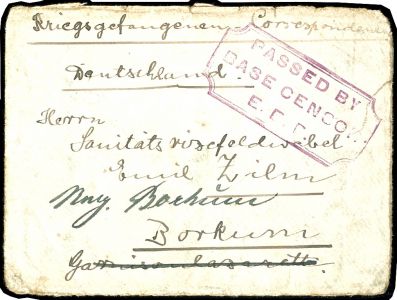 Kriegsgefangenen Correspondenz
PASSED BY
BASE CENSOR
E. E. F.
Deutschland
Herrn
Sanitätsvizefeldwebel
Emil Zilm
Borkum
Borkum
Garnisonlazarett